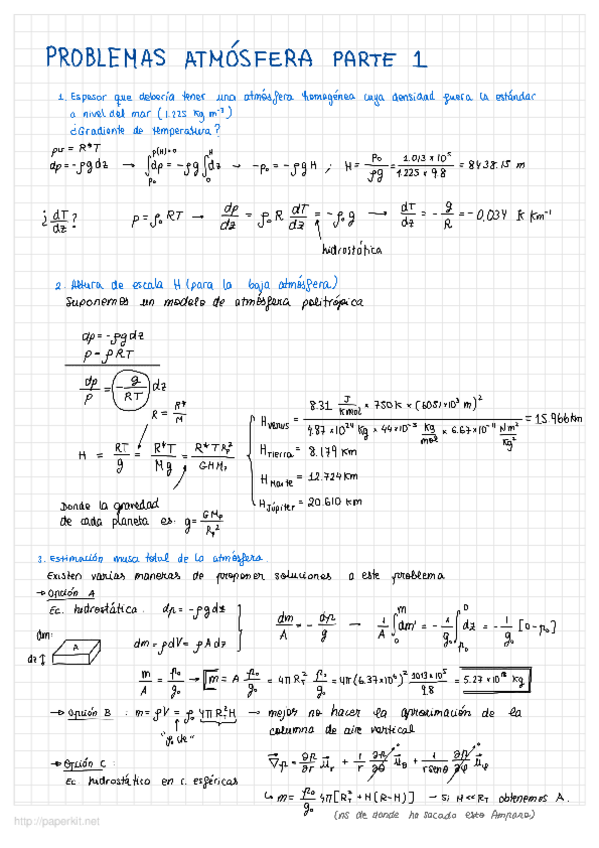 PROBLEMAS ATMÓSFERA PARTE 1
1. Espesor que debería tener una atmósfera homogénea cuya densidad fuera la estándar
a nivel del mar (1.225 kg m⁻³)
¿Gradiente de temperatura?
pv = R*T
dp = -ρg dz → ∫_{p₀}^{p(H)=0} dp = -ρg ∫_0^H dz → -p₀ = -ρg H ; H = p₀/ρg = 1.013 × 10⁵/1.225 × 9.8 = 8438.15 m
¿ dT/dz ? p = ρ₀RT → dp/dz = ρ₀R dT/dz = -ρ₀g → dT/dz = -g/R = -0,034 K km⁻¹
hidrostática
2. Altura de escala H (para la baja atmósfera)
Suponemos un modelo de atmósfera politrópica
dp = -ρg dz
p = ρRT
dp/p = -g/RT dz
R = R*/M
H = RT/g = R*T/Mg = R*T R_p²/GMM_p
H Venus = 8.31 J/Kmol × 750K × (6051×10³ m)² / 4.87 × 10²⁴ kg × 44×10⁻³ kg/mol × 6.67×10⁻¹¹ Nm²/kg² = 15.966km
H Tierra = 8.179 km
H Marte = 12.724km
H Júpiter = 20.610 km
Donde la gravedad
de cada planeta es: g = GM_p/R_p²
3. Estimación masa total de la atmósfera.
Existen varias maneras de proponer soluciones a este problema
→ Opción A
Ec. hidrostática. dp = -ρg dz
dm = ρdV = ρA dz
dm/A = -dp/g → 1/A ∫_0^m dm' = -1/g₀ ∫_{p₀}^0 dz = -1/g₀ [0-p₀]
dm:
dz A
m/A = p₀/g₀ → m = A p₀/g₀ = 4π R_T² p₀/g₀ = 4π(6.37×10⁶)² 1013×10⁵/9.8 = 5.27 × 10¹⁸ kg
→ Opción B : m = ρV = ρ₀ 4πR_T²H → mejor no hacer la aproximación de la
columna de aire vertical
"ρ₀ cte"
→ Opción C :
Ec hidrostática en c. esféricas
∇p = ∂p/∂r u_r + 1/r ∂p/∂θ u_θ + 1/r senθ ∂p/∂φ u_φ
↳ m = p₀/g₀ 4π[R_T² + H(R-H)] → Si H<<R_T obtenemos A.
(ns de donde ha sacado esto Amparo)
http://paperkit.net